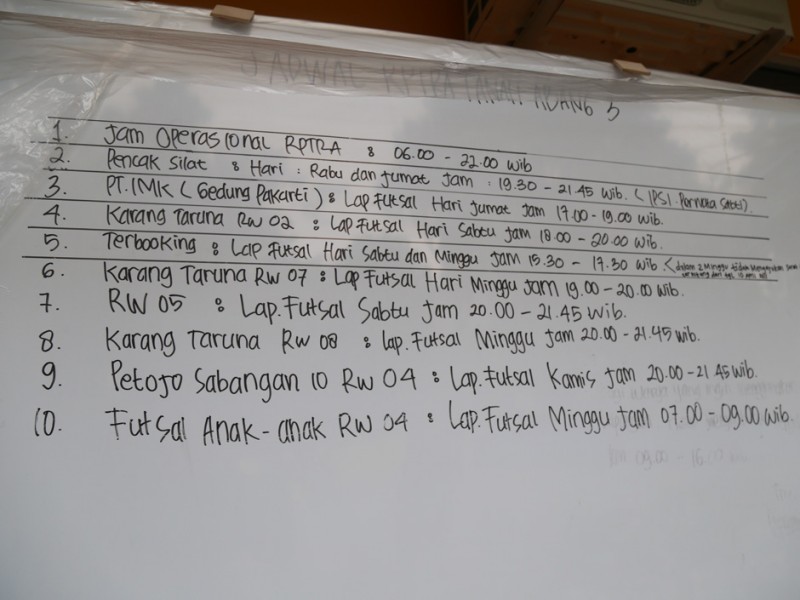 JADWAL RPTRA TANAH ABANG 3
1. Jam Operasional RPTRA : 06.00 - 22.00 Wib
2. Pencak Silat : Hari : Rabu dan Jumat Jam : 19.30 - 21.45 Wib. (IPSI. Permata Sakti).
3. PT. IMK (Gedung Pakarti) : Lap Futsal Hari Jumat Jam 17.00 - 19.00 Wib.
4. Karang Taruna RW 02 : Lap Futsal Hari Sabtu Jam 18.00 - 20.00 Wib.
5. Terbooking : Lap Futsal Hari Sabtu dan Minggu Jam 15.30 - 17.30 Wib. (dalam 2 Minggu tidak
6. Karang Taruna RW 07 : Lap Futsal Hari Minggu Jam 19.00 - 20.00 Wib.
7. RW 05 : Lap. Futsal Sabtu Jam 20.00 - 21.45 Wib.
8. Karang Taruna RW 08 : Lap. Futsal Minggu Jam 20.00 - 21.45 Wib.
9. Petojo Sabangan 10 RW 04 : Lap. Futsal Kamis Jam 20.00 - 21 45 Wib.
10. Futsal Anak-anak RW 04 : Lap. Futsal Minggu Jam 07.00 - 09.00 Wib.